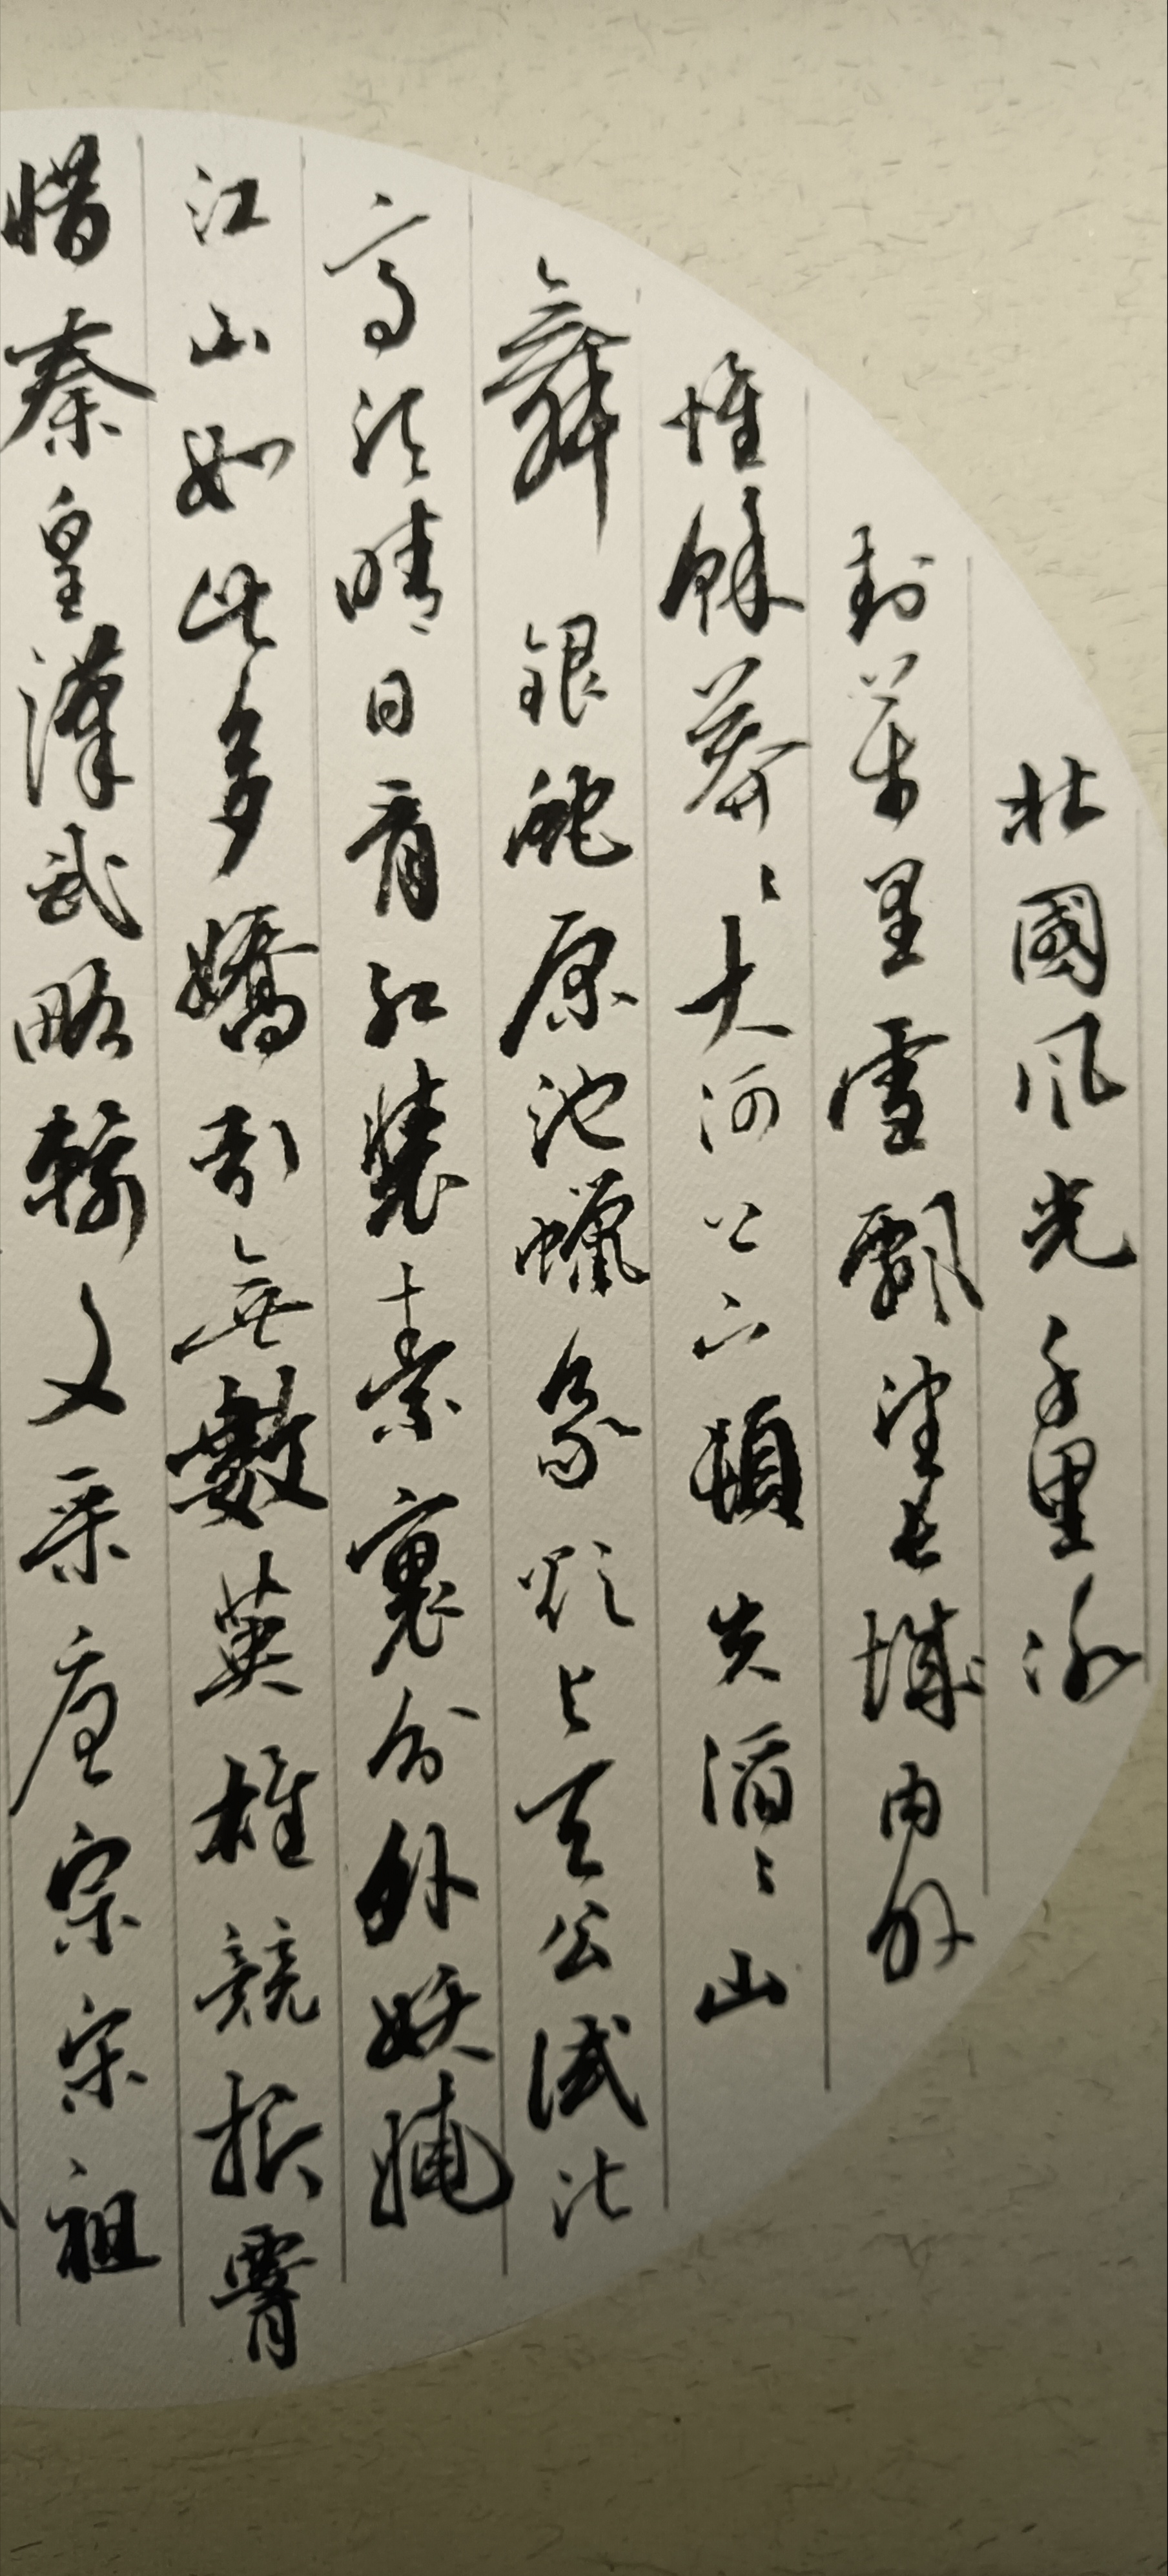 北國風光千里冰
封萬里雪飄望長城內外
惟餘莽〻大河上下頓失滔〻山
舞銀蛇原池蠟象欲與天公試比
高須晴日看紅裝素裹分外妖嬈
江山如此多嬌引無數英雄競折腰
惜秦皇漢武略輸文采唐宗宋祖